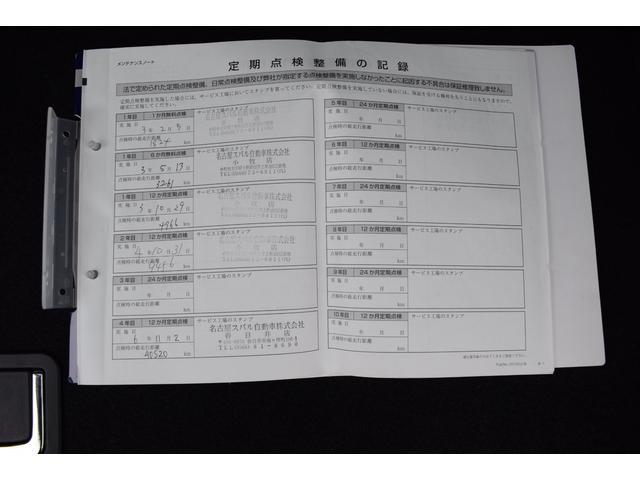 メンテナンスノート
定期点検整備の記録
法で定められた定期点検整備、日常点検整備及び弊社が指定する点検整備を実施しなかったことに起因する不具合は保証修理致しません。
1年目 1か月無料点検 サービス工場のスタンプ
実施日 3年2月5日
点検時の総走行距離
1824 km
1年目 6か月無料点検 サービス工場のスタンプ
名古屋スバル自動車株式会社
小牧店
実施日 3年5月13日
点検時の総走行距離
3261 km
1年目 12か月定期点検 サービス工場のスタンプ
実施日 3年10月29日
点検時の総走行距離
4966 km
2年目 12か月定期点検 サービス工場のスタンプ
名古屋スバル自動車株式会社
実施日 4年10月31日
点検時の総走行距離
9456 km
3年目 24か月定期点検 サービス工場のスタンプ
実施日 年 月 日
点検時の総走行距離
km
4年目 12か月定期点検 サービス工場のスタンプ
名古屋スバル自動車株式会社
春日井店
実施日 6年11月2日
点検時の総走行距離
40520 km
5年目 24か月定期点検 サービス工場のスタンプ
実施日 年 月 日
点検時の総走行距離
km
6年目 12か月定期点検 サービス工場のスタンプ
実施日 年 月 日
点検時の総走行距離
km
7年目 24か月定期点検 サービス工場のスタンプ
実施日 年 月 日
点検時の総走行距離
km
8年目 12か月定期点検 サービス工場のスタンプ
実施日 年 月 日
点検時の総走行距離
km
9年目 24か月定期点検 サービス工場のスタンプ
実施日 年 月 日
点検時の総走行距離
km
10年目 12か月定期点検 サービス工場のスタンプ
実施日 年 月 日
点検時の総走行距離
km